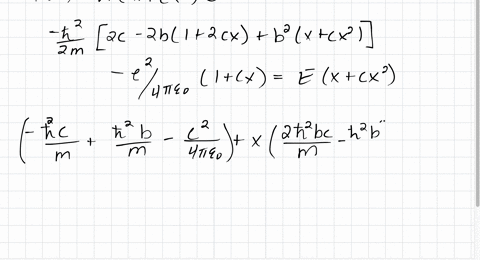 -ħ²/2m [2c - 2b(1+2cx) + b²(x+cx²)]
- e²/4πε₀ (1+cx) = E(x+cx²)
(-ħ²c/m + ħ²b/m - e²/4πε₀) + x (2ħ²bc/m - ħ²b